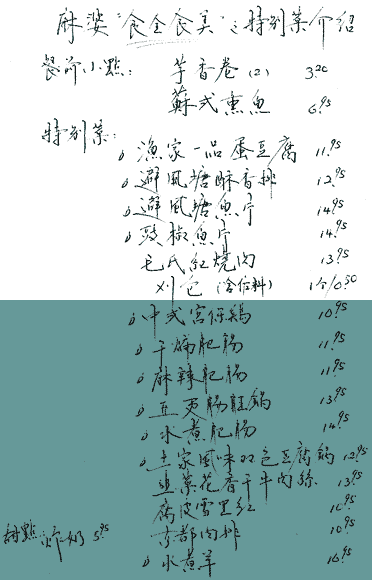 麻婆"食全食美"之特别菜介绍
餐前小點: 芋香卷(2) 3.20
蘇式熏魚 6.95
特别菜:
漁家一品蛋豆腐 11.95
避風塘酥香排 12.95
避風塘魚片 14.95
豉椒魚片 14.95
毛氏紅燒肉 13.95
刈包(含佐料) 1个/0.50
中式宫保鷄 10.95
干煸肥肠 11.95
麻辣肥肠 11.95
五更肠旺鍋 13.95
水煮肥肠 14.95
土家風味双色豆腐鍋 12.95
韭菜花香干牛肉絲 13.95
腐皮雪里红
京都肉排 10.95
甜點 5.95
水煮羊 16.95